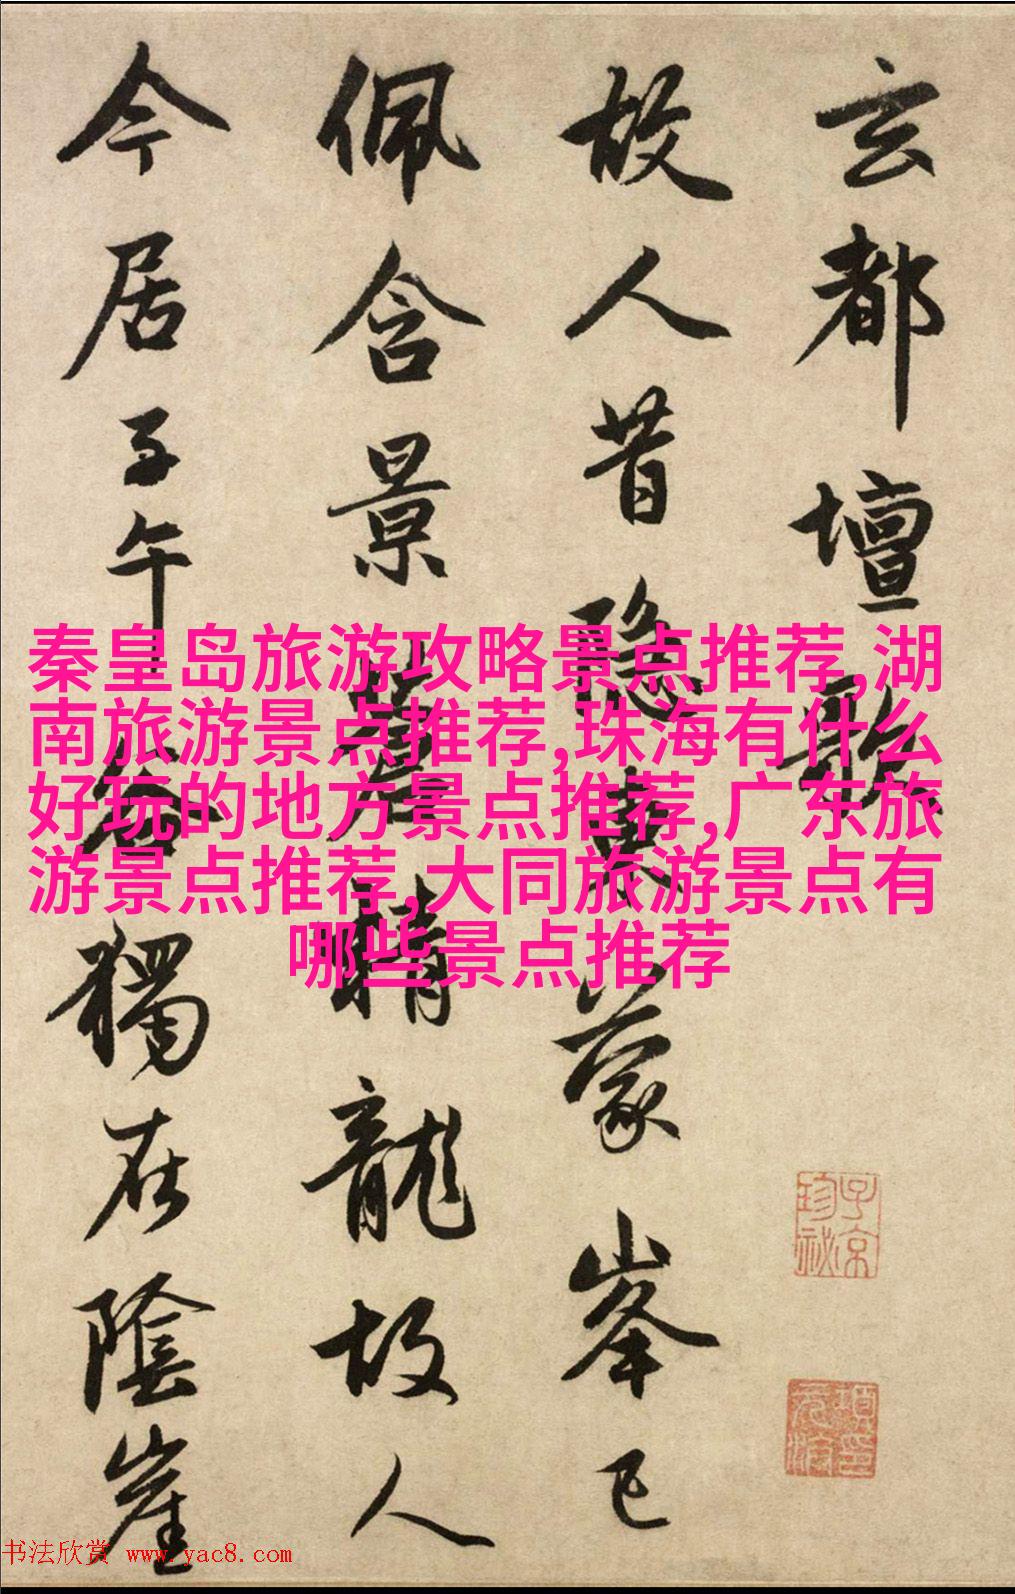 玄都壇歌
故人昔隐東蒙峯已
佩含景蒼精龍故人
今居子午谷獨在陰崖
秦皇岛旅游攻略景点推荐,湖
南旅游景点推荐,珠海有什么
好玩的地方景点推荐,广东旅
游景点推荐,大同旅游景点有
哪些景点推荐
子京
珍祕
书法欣赏 www.yac8.com